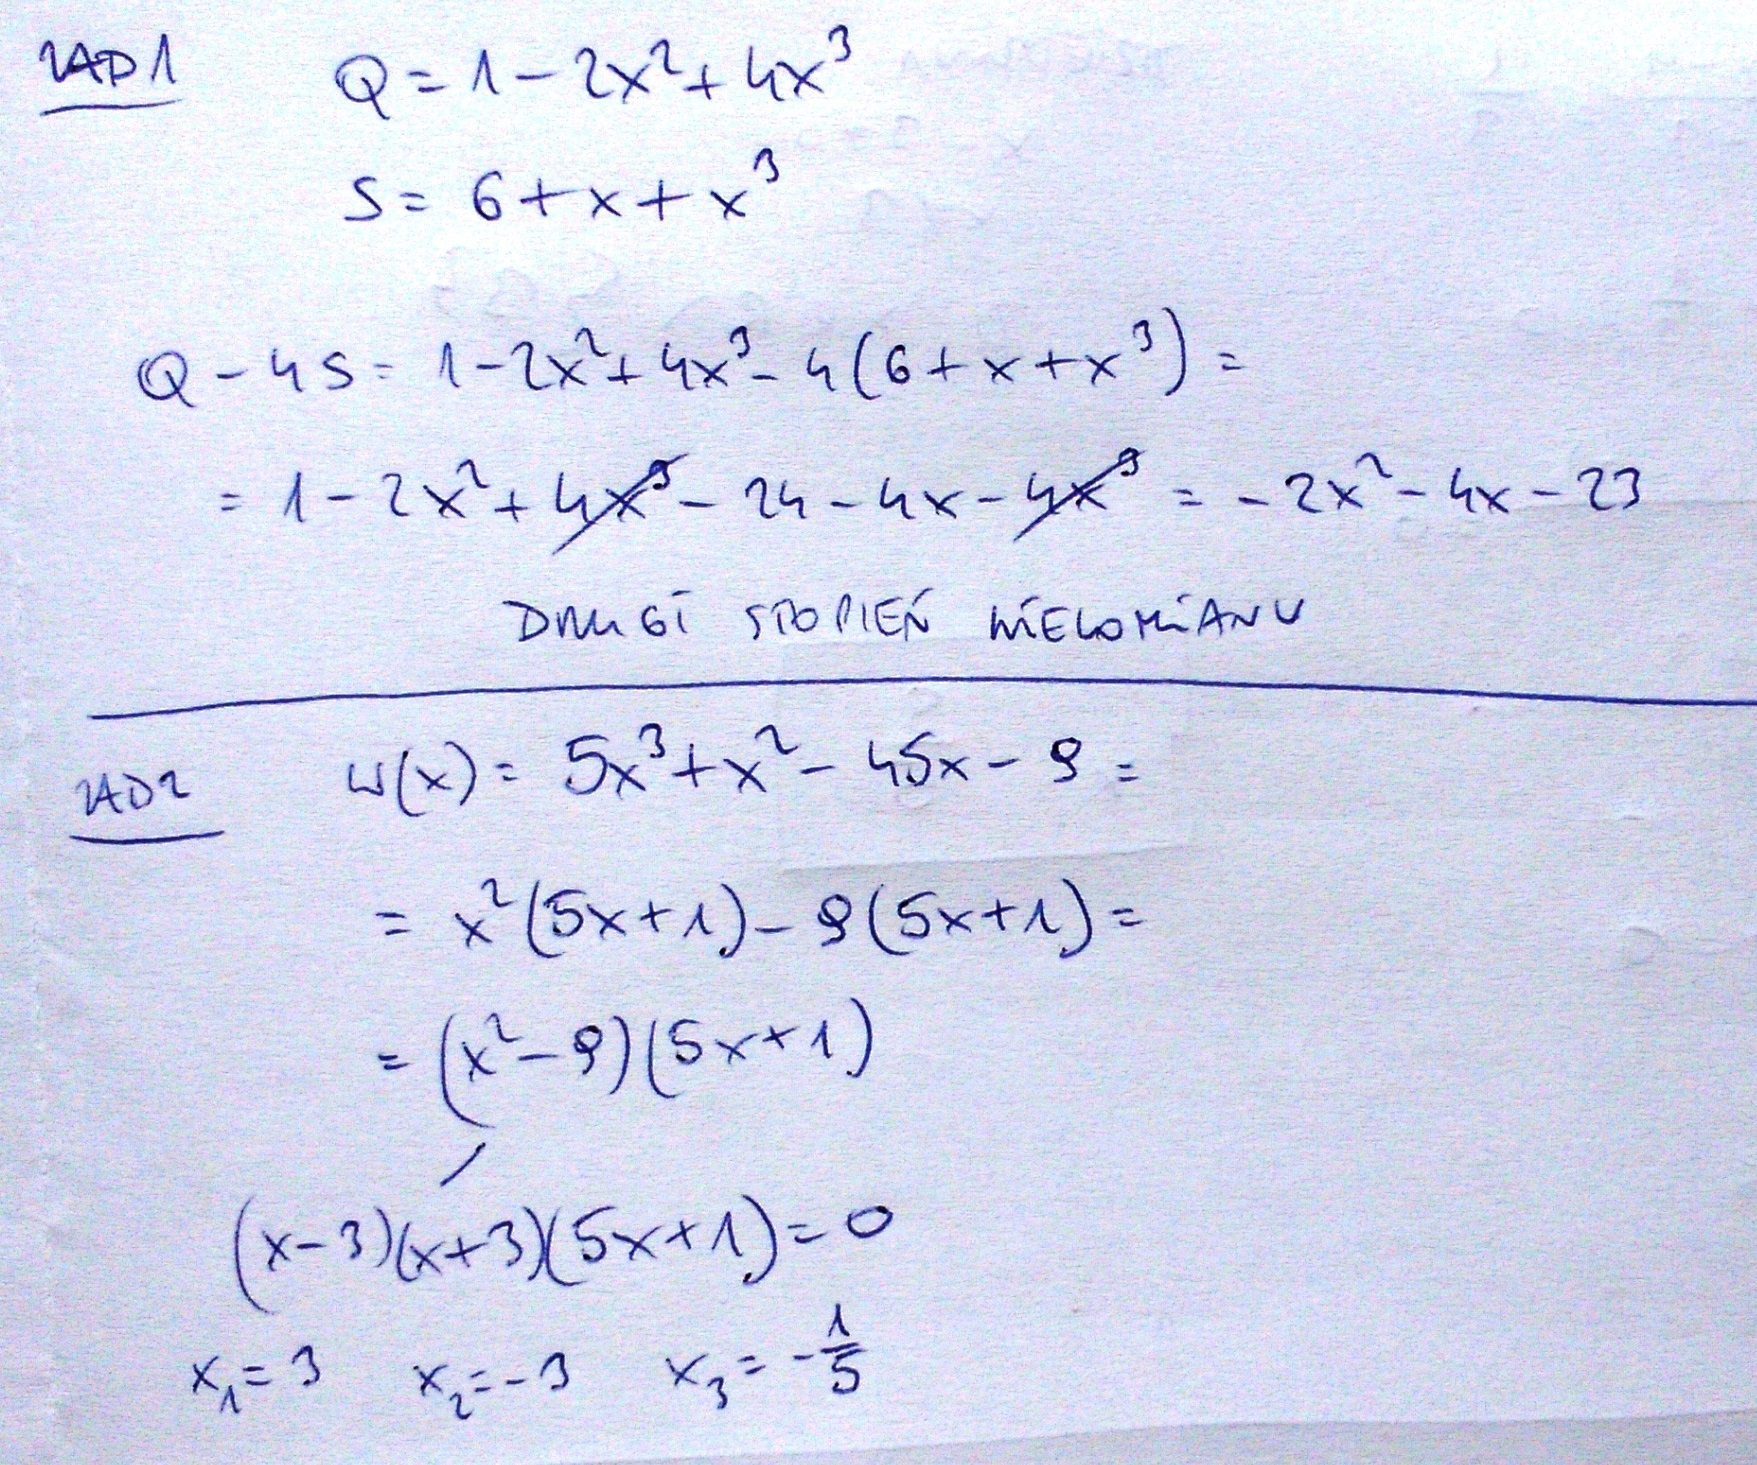 ZAD 1 Q = 1 - 2x² + 4x³
S = 6 + x + x³
Q - 4S = 1 - 2x² + 4x³ - 4(6 + x + x³) =
= 1 - 2x² + 4x³ - 24 - 4x - 4x³ = - 2x² - 4x - 23
DRUGI STOPIEŃ WIELOMIANU
ZAD 2 W(x) = 5x³ + x² - 45x - 9 =
= x²(5x + 1) - 9(5x + 1) =
= (x² - 9)(5x + 1)
(x - 3)(x + 3)(5x + 1) = 0
x₁ = 3 x₂ = - 3 x₃ = - 1/5